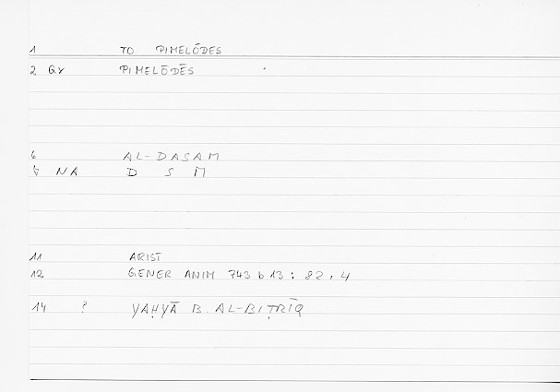 1 TO PIMELŌDES
2 GY PIMELŌDĒS
6 AL-DASAM
NA D S M
11 ARIST
12 GENER ANIM 743 b 13 : 82, 4
14 ? YAḤYĀ B. AL-BIṬRĪQ